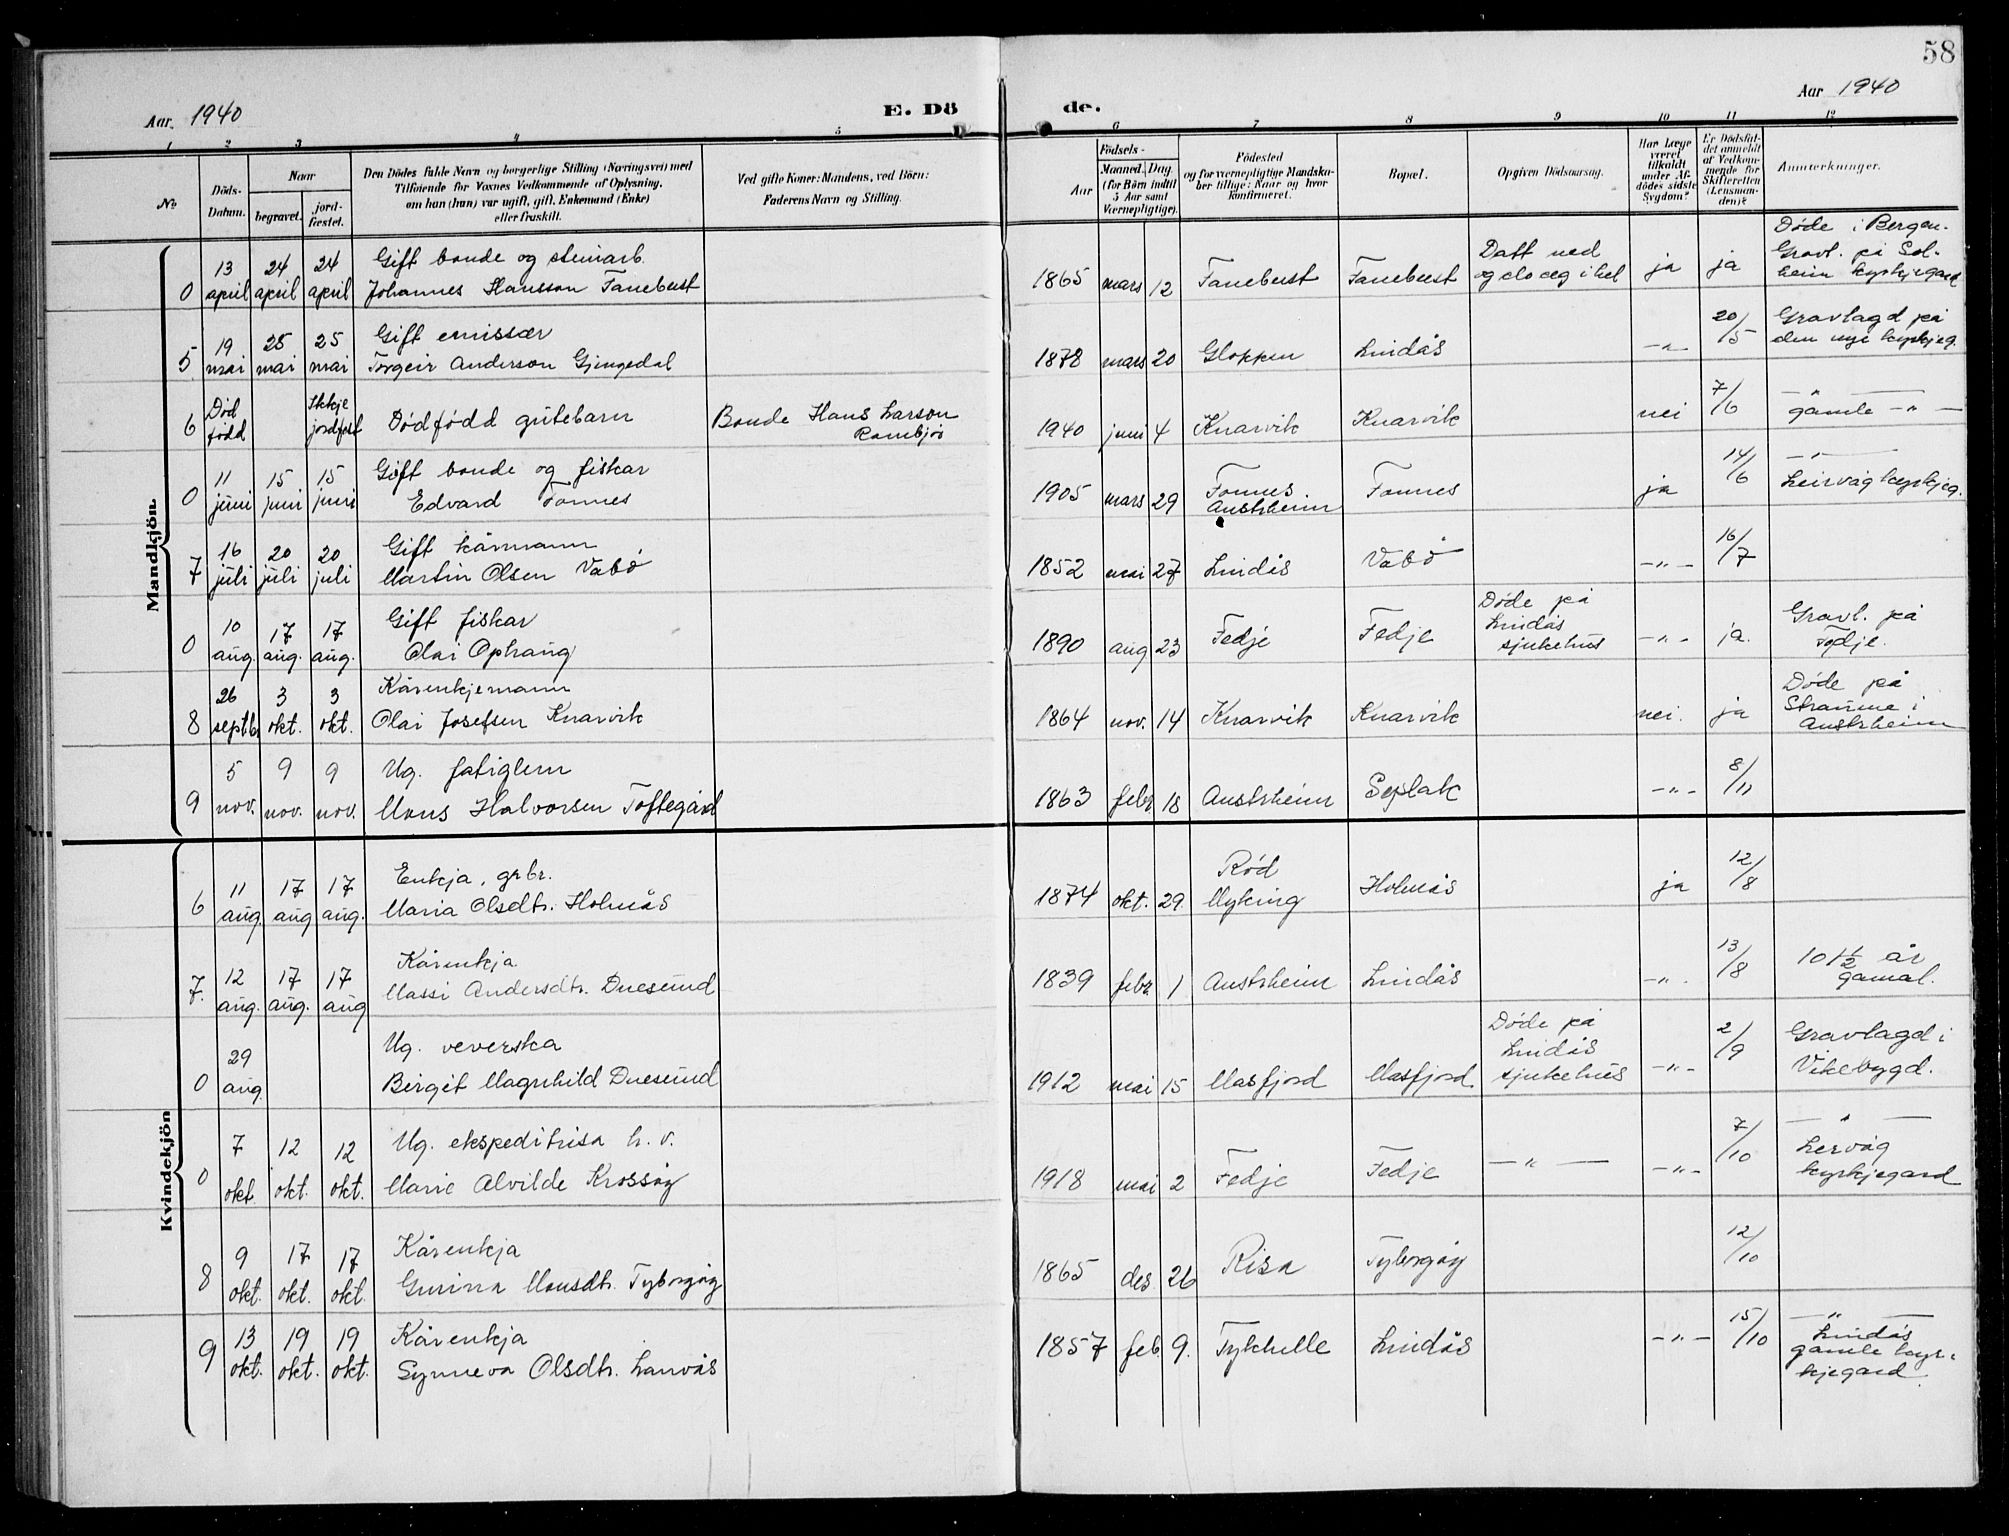 58
Aar 1940
E. Dö
de.
Aar 1940
1 2 3 4 5 6 7 8 9 10 11 12
No
Döds-Datum.
Naar
begravet.
jord-fæstet.
Den Dödes fulde Navn og borgerlige Stilling (Næringsvei) med
Tilföiende for Voxnes Vedkommende af Oplysning,
om han (hun) var ugift, gift, Enkemand (Enke)
eller fraskilt.
Ved gifte Koner: Mandens, ved Börn:
Faderens Navn og Stilling.
Födsels-
Aar
Maaned. Dag.
(for Börn indtil
5 Aar samt
Værnepligtige).
Födested
og for værnepligtige Mandska-
ber tillige: Naar og hvor
konfirmeret.
Bopæl.
Opgiven Dödsaarsag.
Har Læge
været
tilkaldt
under Af-
dödes sidste
Sygdom?
Er Dödsfal-
det anmeldt
af Vedkom-
mende for
Skifteretten
(Lensman-
den)?
Anmerkninger.
Mandkjön.
0 13 april 24 april 24 april Gift bonde og steinarb.
Johannes Hansson Fanebust
1865 mars 12 Fanebust Fanebust Datt ned
og slo seg i hel ja ja Døde i Bergen.
Gravl. på Sol-
heim kyrkjegard
5 19 mai 25 mai 25 mai Gift emissær
Torgeir Anderson Gjengedal
1878 mars 20 Gloppen Lindås -„- 20/5 Gravlagd på
den nye kyrkjeg.
6 Død født Ikkje jordfest Dødfødd gutebarn Bonde Hans Larson
1940 juni 4 Knarvik Knarvik nei 7/6 -„-
gamle -„-
0 11 juni 15 juni 15 juni Gift bonde og fiskar
Edvard Fonnes
1905 mars 29 Fonnes
Austrheim Fonnes ja 14/6 -„-
Leirvåg kyrkjeg.
7 16 juli 20 juli 20 juli Gift kårmann
Martin Olsen Vabø
1852 mai 27 Lindås Vabø -„- 16/7
0 10 aug. 17 aug. 17 aug. Gift fiskar
Olai Ophaug
1890 aug 23 Fedje Fedje Døde på
Lindås
sjukehus -„- ja. Gravl. på
Fedje.
8 26 septb. 3 okt. 3 okt. Kårenkjemann
Olai Josefsen Knarvik
1864 nov. 14 Knarvik Knarvik nei. ja Døde på
Straume i
Austrheim
9 5 nov. 9 nov. 9 nov. Ug. fatiglem
Mons Halvorsen Toftegård
1863 febr. 18 Austrheim Seplak -„- 8/11
Kvindekjön
6 11 aug. 17 aug 17 aug. Enkja, grbr.
Maria Olsdtr. Holmås
1874 okt. 29. Rød
Myking Holmås ja 12/8
7. 12 aug. 17 aug. 17 aug Kårenkja
Massi Andersdtr. Duesund
1839 febr. 1 Austrheim Lindås -„- 13/8 101½ år
gamal.
0 29 aug Ug. veverska
Birgit Magnhild Duesund
1912 mai 15 Masfjord Masfjord Døde på
Lindås
sjukehus -„- 2/9 Gravlagd i
Vikebygd.
0 7 okt. 12 okt. 12 okt. Ug. ekspeditrisa h. v.
Marie Alvilde Krossøy
1918 mai 2 Fedje Fedje -„- -„- 7/10 -„-
Lervåg
kyrkjegard
8 9 okt. 17 okt. 17 okt. Kårenkja
Gurina Monsdtr. Tyborgøy
1865 des. 26 Risa Tyborgøy 12/10
9 13 okt. 19 okt. 19 okt. Kårenkja
Synneva Olsdtr. Lanvås
1857 feb. 9. Tykhelle Lindås -„- 15/10 -„-
Lindås
gamle kyr-
kjegard.